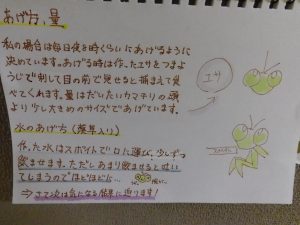 あげ方、量
私の場合は毎日夜8時くらいにあげるように
決めています。あげる時は作ったエサをつまよ
うじで刺して目の前で見せると捕まえて食
べてくれます。量はだいたいカマキリの頭
より少し大きめのサイズであげています。
エサ
水のあげ方
作った水はスポイトで口に運び、少しずつ
飲ませます。ただしあまり飲ませると吐い
てしまうのでほどほどに…
⇒さて次は気になる結果に迫ります!